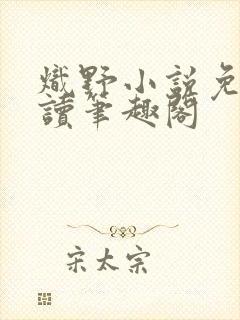 熾野小說免
讀筆趣閣
宋太宗